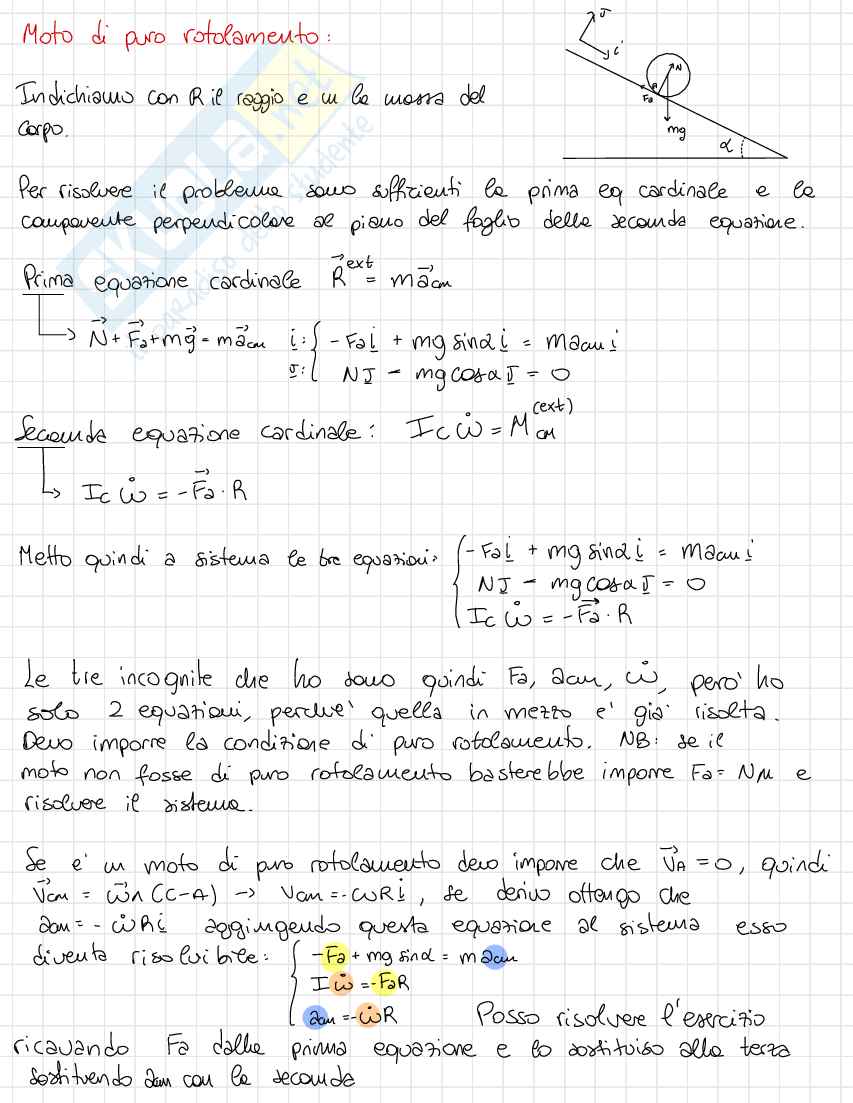 Moto di puro rotolamento:
J
i
N
Fa
mg
α
Indichiamo con R il raggio e m la massa del
corpo.
Per risolvere il problema sono sufficienti la prima eq cardinale e la
componente perpendicolare al piano del foglio della seconda equazione.
Prima equazione cardinale R⃗^ext = m a⃗cm
→ N⃗ + F⃗a + m g⃗ = m a⃗cm i: { - Fa i + mg sinα i = m acm i
J: { N J - mg cosα J = 0
Seconda equazione cardinale: Ic ω̇ = M cm^(ext)
→ Ic ω̇ = - F⃗a · R
Metto quindi a sistema le tre equazioni: { - Fa i + mg sinα i = m acm i
N J - mg cosα J = 0
Ic ω̇ = - F⃗a · R
Le tre incognite che ho sono quindi Fa, acm, ω̇, però ho
solo 2 equazioni, perché quella in mezzo è già risolta.
Devo imporre la condizione di puro rotolamento. NB: se il
moto non fosse di puro rotolamento basterebbe imporre Fa = Nμ e
risolvere il sistema.
Se è un moto di puro rotolamento devo imporre che V⃗A = 0, quindi
V⃗cm = ω⃗ ∧ (C-A) → Vcm = -ωR i, se derivo ottengo che
acm = - ω̇R i aggiungendo questa equazione al sistema esso
diventa risolvibile: { -Fa + mg sinα = m acm
I ω̇ = -FaR
acm = -ω̇R Posso risolvere l'esercizio
ricavando Fa dalla prima equazione e lo sostituiso alla terza
sostituendo acm con la seconda
SKUOLA.net
il paradiso dello studente